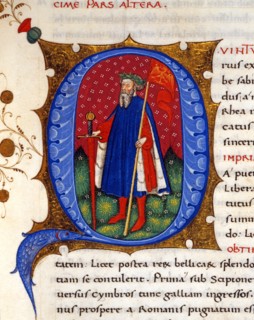 CIME PARS ALTERA.
Q
VINTV
rius ex
be sabi
dus:a
Rhea
catus
sincerit
IMPRI
A' puer
Libera
tutus
summ
do: Lu
OBTI
tatim: Licet postea rex bellicas splendo
tiam se contulerit. Prima sub Scipione
versus Cymbros tunc galliam ingressos.
nus prospere a Romanis pugnatum es